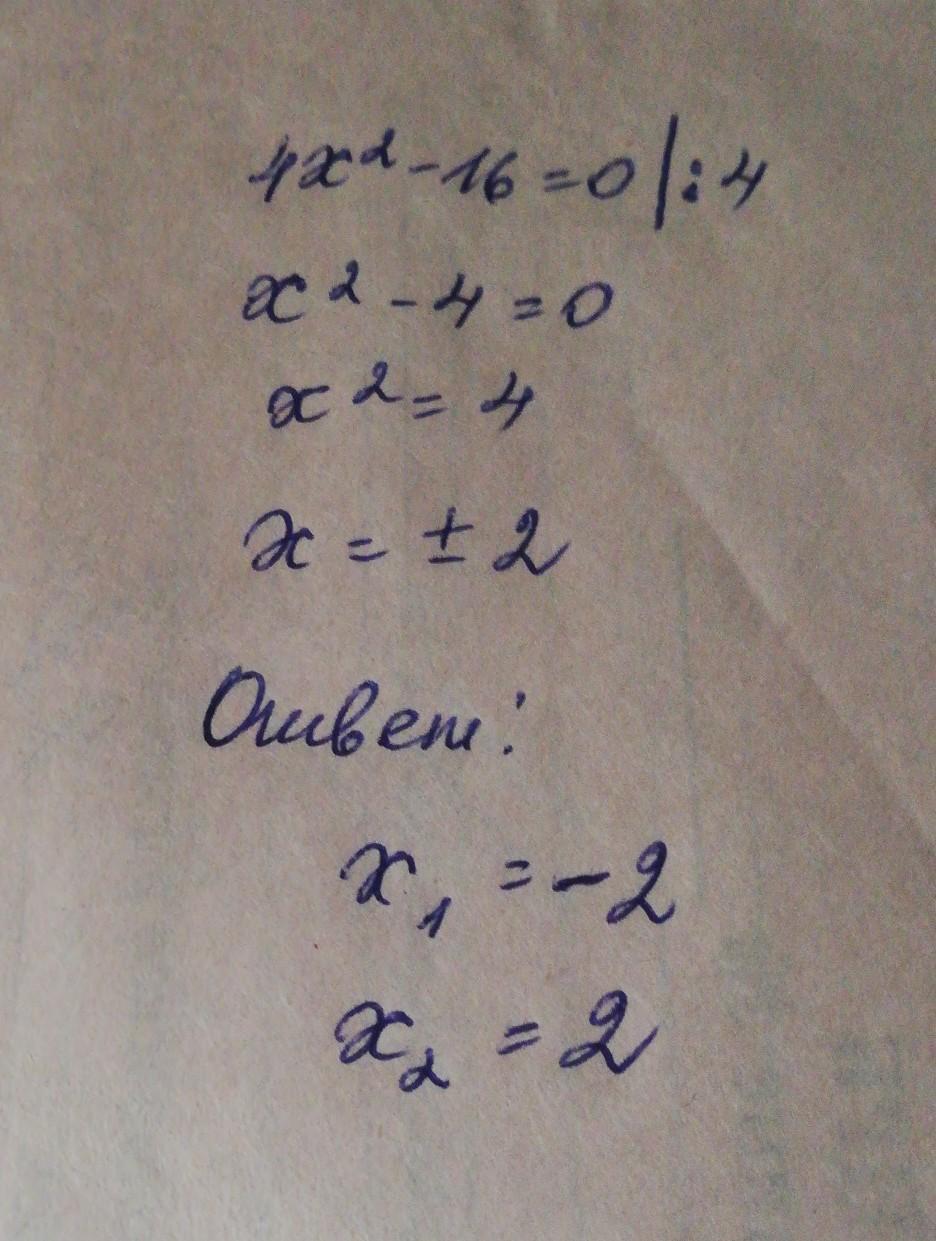 4x² - 16 = 0 | : 4
x² - 4 = 0
x² = 4
x = ± 2
Ответ:
x₁ = -2
x₂ = 2